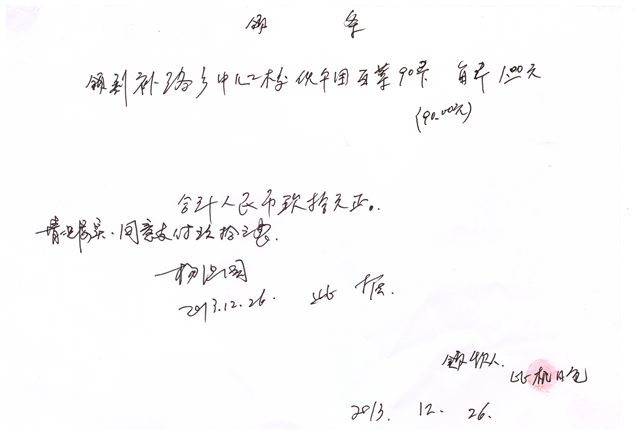 领 单
领到补洛乡中心校伙午团豆菜90斤 每斤1.00元
(90.00元)
合计人民币玖拾元正。
情况属实.同意支付玖拾元.
2013.12.26. 此据.
领款人.
2013. 12. 26.